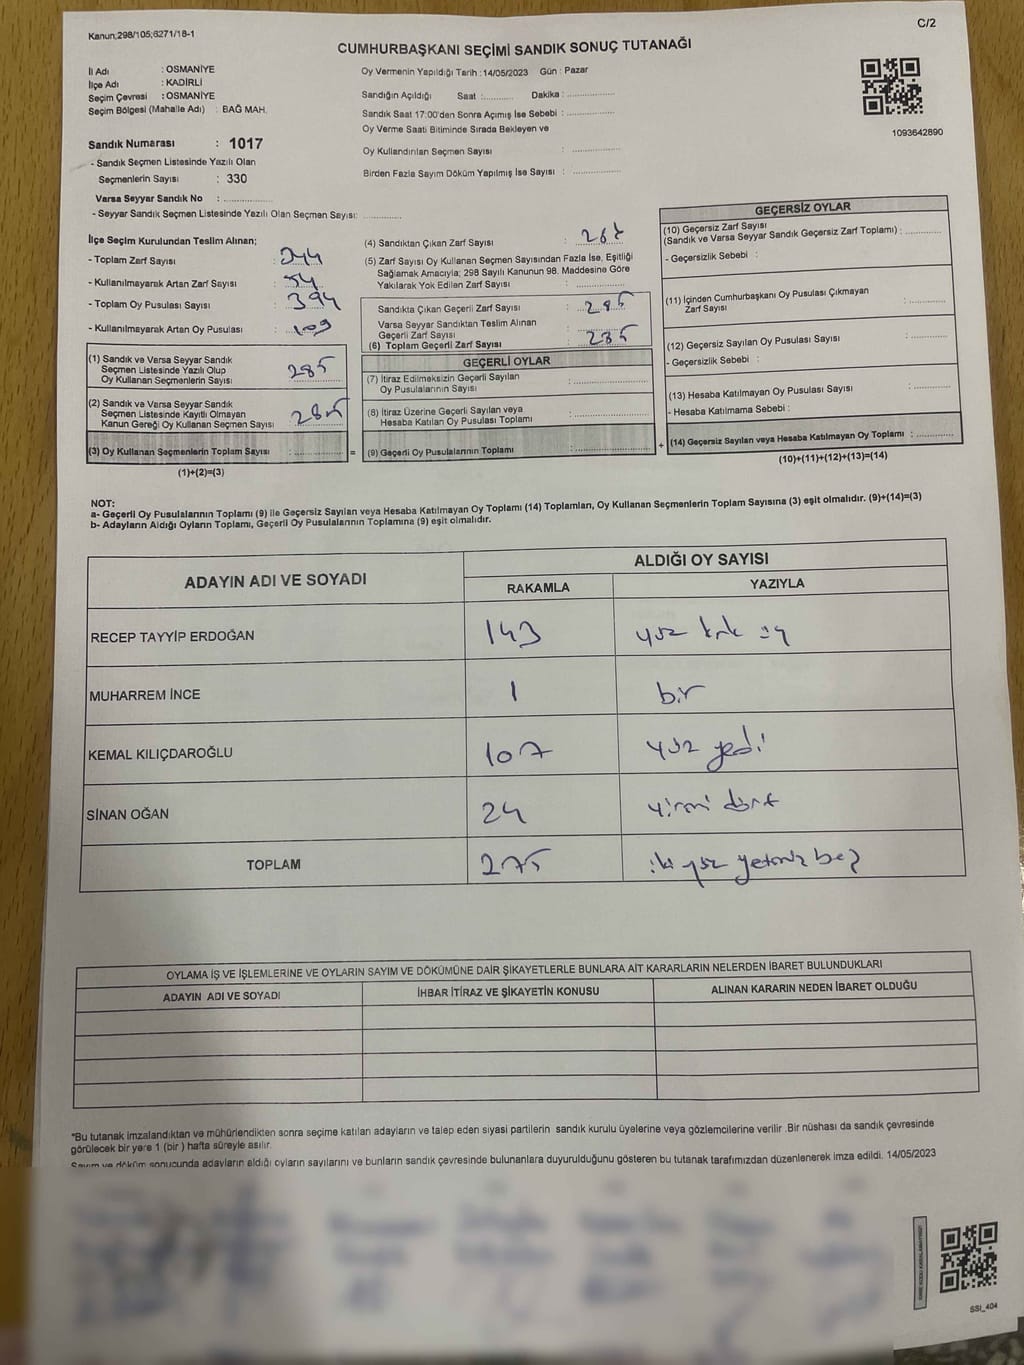 Kanun,298/105;6271/18-1
C/2
CUMHURBAŞKANI SEÇİMİ SANDIK SONUÇ TUTANAĞI
İl Adı : OSMANİYE
İlçe Adı : KADİRLİ
Seçim Çevresi : OSMANİYE
Seçim Bölgesi (Mahalle Adı) : BAĞ MAH.
Sandık Numarası : 1017
- Sandık Seçmen Listesinde Yazılı Olan
Seçmenlerin Sayısı : 330
Varsa Seyyar Sandık No : ............
- Seyyar Sandık Seçmen Listesinde Yazılı Olan Seçmen Sayısı: ............
Oy Vermenin Yapıldığı Tarih : 14/05/2023 Gün : Pazar
Sandığın Açıldığı Saat :......... Dakika : ..............
Sandık Saat 17:00'den Sonra Açımış İse Sebebi : ..............
Oy Verme Saati Bitiminde Sırada Bekleyen ve
Oy Kullandırılan Seçmen Sayısı : ..............
Birden Fazla Sayım Döküm Yapılmış İse Sayısı : ..............
1093642890
İlçe Seçim Kurulundan Teslim Alınan;
- Toplam Zarf Sayısı : 344
- Kullanılmayarak Artan Zarf Sayısı : 54
- Toplam Oy Pusulası Sayısı : 394
- Kullanılmayarak Artan Oy Pusulası : 109
(1) Sandık ve Varsa Seyyar Sandık
Seçmen Listesinde Yazılı Olup
Oy Kullanan Seçmenlerin Sayısı : 285
(2) Sandık ve Varsa Seyyar Sandık
Seçmen Listesinde Kayıtlı Olmayan
Kanun Gereği Oy Kullanan Seçmen Sayısı : 285
(3) Oy Kullanan Seçmenlerin Toplam Sayısı : ............ =
(1)+(2)=(3)
(4) Sandıktan Çıkan Zarf Sayısı :
(5) Zarf Sayısı Oy Kullanan Seçmen Sayısından Fazla İse, Eşitliği
Sağlamak Amacıyla; 298 Sayılı Kanunun 98. Maddesine Göre
Yakılarak Yok Edilen Zarf Sayısı : ............
Sandıkta Çıkan Geçerli Zarf Sayısı : 285
Varsa Seyyar Sandıktan Teslim Alınan
Geçerli Zarf Sayısı
(6) Toplam Geçerli Zarf Sayısı : 285
GEÇERLİ OYLAR
(7) İtiraz Edilmeksizin Geçerli Sayılan
Oy Pusulalarının Sayısı : ............
(8) İtiraz Üzerine Geçerli Sayılan veya
Hesaba Katılan Oy Pusulası Toplamı : ............
(9) Geçerli Oy Pusulalarının Toplamı : ............ +
GEÇERSİZ OYLAR
(10) Geçersiz Zarf Sayısı
(Sandık ve Varsa Seyyar Sandık Geçersiz Zarf Toplamı) : ..........
- Geçersizlik Sebebi :
(11) İçinden Cumhurbaşkanı Oy Pusulası Çıkmayan
Zarf Sayısı : ..........
(12) Geçersiz Sayılan Oy Pusulası Sayısı : ..........
- Geçersizlik Sebebi :
(13) Hesaba Katılmayan Oy Pusulası Sayısı : ..........
- Hesaba Katılmama Sebebi :
(14) Geçersiz Sayılan veya Hesaba Katılmayan Oy Toplamı : ..........
(10)+(11)+(12)+(13)=(14)
NOT:
a- Geçerli Oy Pusulalarının Toplamı (9) ile Geçersiz Sayılan veya Hesaba Katılmayan Oy Toplamı (14) Toplamları, Oy Kullanan Seçmenlerin Toplam Sayısına (3) eşit olmalıdır. (9)+(14)=(3)
b- Adayların Aldığı Oyların Toplamı, Geçerli Oy Pusulalarının Toplamına (9) eşit olmalıdır.
ADAYIN ADI VE SOYADI ALDIĞI OY SAYISI
RAKAMLA YAZIYLA
RECEP TAYYİP ERDOĞAN 143 yüz kırk üç
MUHARREM İNCE 1 bir
KEMAL KILIÇDAROĞLU 107 yüz yedi
SİNAN OĞAN 24 yirmi dört
TOPLAM 275 iki yüz yetmiş beş
OYLAMA İŞ VE İŞLEMLERİNE VE OYLARIN SAYIM VE DÖKÜMÜNE DAİR ŞİKAYETLERLE BUNLARA AİT KARARLARIN NELERDEN İBARET BULUNDUKLARI
ADAYIN ADI VE SOYADI İHBAR İTİRAZ VE ŞİKAYETİN KONUSU ALINAN KARARIN NEDEN İBARET OLDUĞU
*Bu tutanak imzalandıktan ve mühürlendikten sonra seçime katılan adayların ve talep eden siyasi partilerin sandık kurulu üyelerine veya gözlemcilerine verilir .Bir nüshası da sandık çevresinde
görülecek bir yere 1 (bir ) hafta süreyle asılır.
Sayım ve döküm sonucunda adayların aldığı oyların sayılarını ve bunların sandık çevresinde bulunanlara duyurulduğunu gösteren bu tutanak tarafımızdan düzenlenerek imza edildi. 14/05/2023
SSI_404